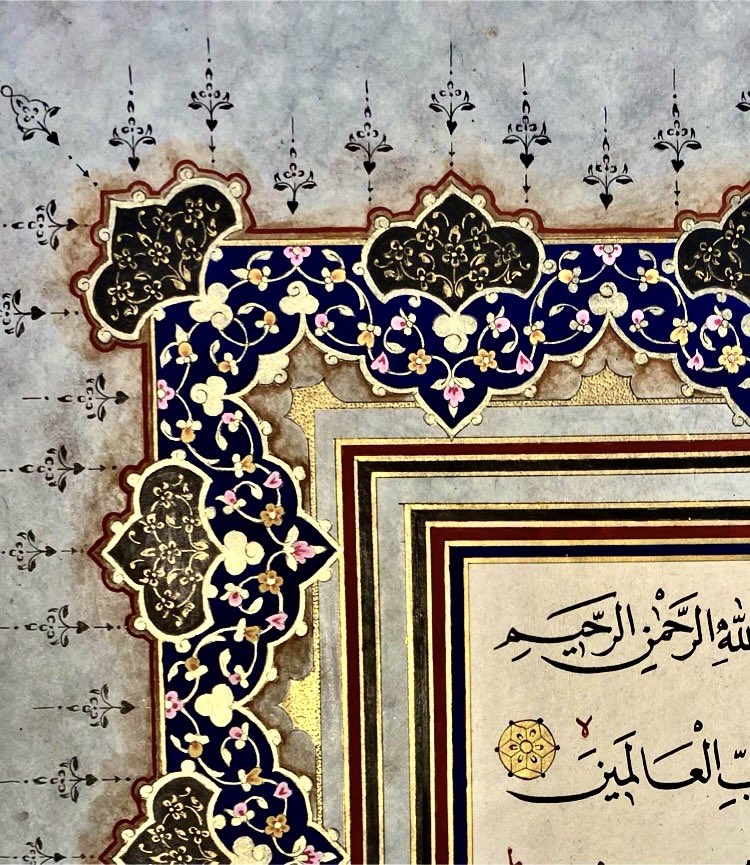 اللّٰهِ الرَّحْمٰنِ الرَّحِيمِ
رَبِّ الْعَالَمِينَ